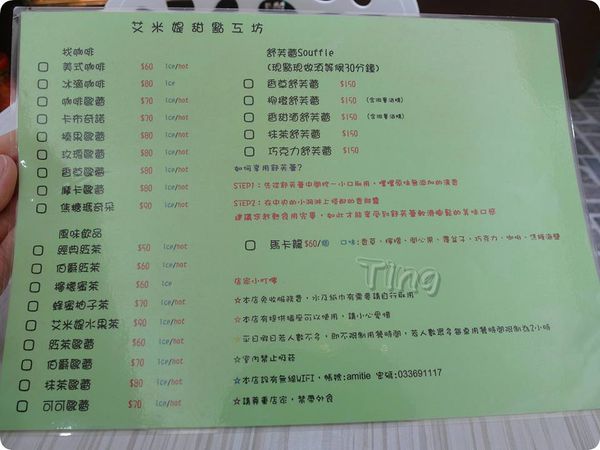 艾米媞甜點工坊
找咖啡
美式咖啡 $60 ice/hot
冰滴咖啡 $80 ice
咖啡歐蕾 $70 ice/hot
卡布奇諾 $70 ice/hot
榛果歐蕾 $80 ice/hot
玫瑰歐蕾 $80 ice/hot
香草歐蕾 $80 ice/hot
摩卡歐蕾 $80 ice/hot
焦糖瑪奇朵 $90 ice/hot
風味飲品
經典紅茶 $50 ice/hot
伯爵紅茶 $60 ice/hot
檸檬蜜茶 $60 ice
蜂蜜柚子茶 $70 ice/hot
艾米媞水果茶 $90 ice/hot
紅茶歐蕾 $60 ice/hot
伯爵歐蕾 $70 ice/hot
抹茶歐蕾 $80 ice/hot
可可歐蕾 $70 ice/hot
舒芙蕾Souffle
(現點現做須等候30分鐘)
香草舒芙蕾 $150
柳橙舒芙蕾 $150 (含微量酒精)
香甜酒舒芙蕾 $150 (含微量酒精)
抹茶舒芙蕾 $150
巧克力舒芙蕾 $150
如何享用舒芙蕾?
STEP1:先從舒芙蕾中間挖一小口取用,嚐嚐原味無添加的清香
STEP2:在中央的小洞淋上搭配的香甜醬
建議您趁熱食用完畢,如此才能享受到舒芙蕾軟滑膨鬆的美味口感
馬卡龍 $60/個 口味:香草、檸檬、開心果、覆盆子、巧克力、咖啡、焦糖海鹽
Ting
店家小叮嚀
☆本店免收服務費,水及紙巾有需要請自行取用
☆本店有提供插座可以使用,請小心愛惜
☆平日假日若人數不多,即不限制用餐時間,若人數眾多每桌用餐時間限制為2小時
☆室內禁止吸菸
☆本店設有無線WIFI,帳號:amitie 密碼:033691117
☆請尊重店家,禁帶外食